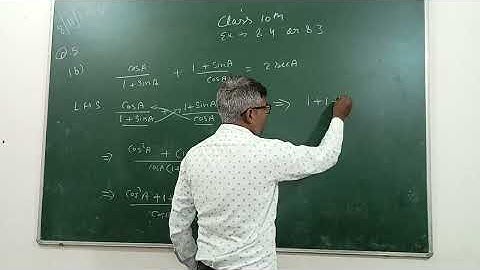 Class 10th
Ex → 8.4 or 8.3
Q.5
(b) cosA / 1 + sinA + 1 + sinA / cosA = 2 secA
LHS cosA / 1 + sinA 1 + sinA / cosA ⇒ 1 + 1 +
⇒ cos²A + (
cosA (1
⇒ cos²A + 1 +